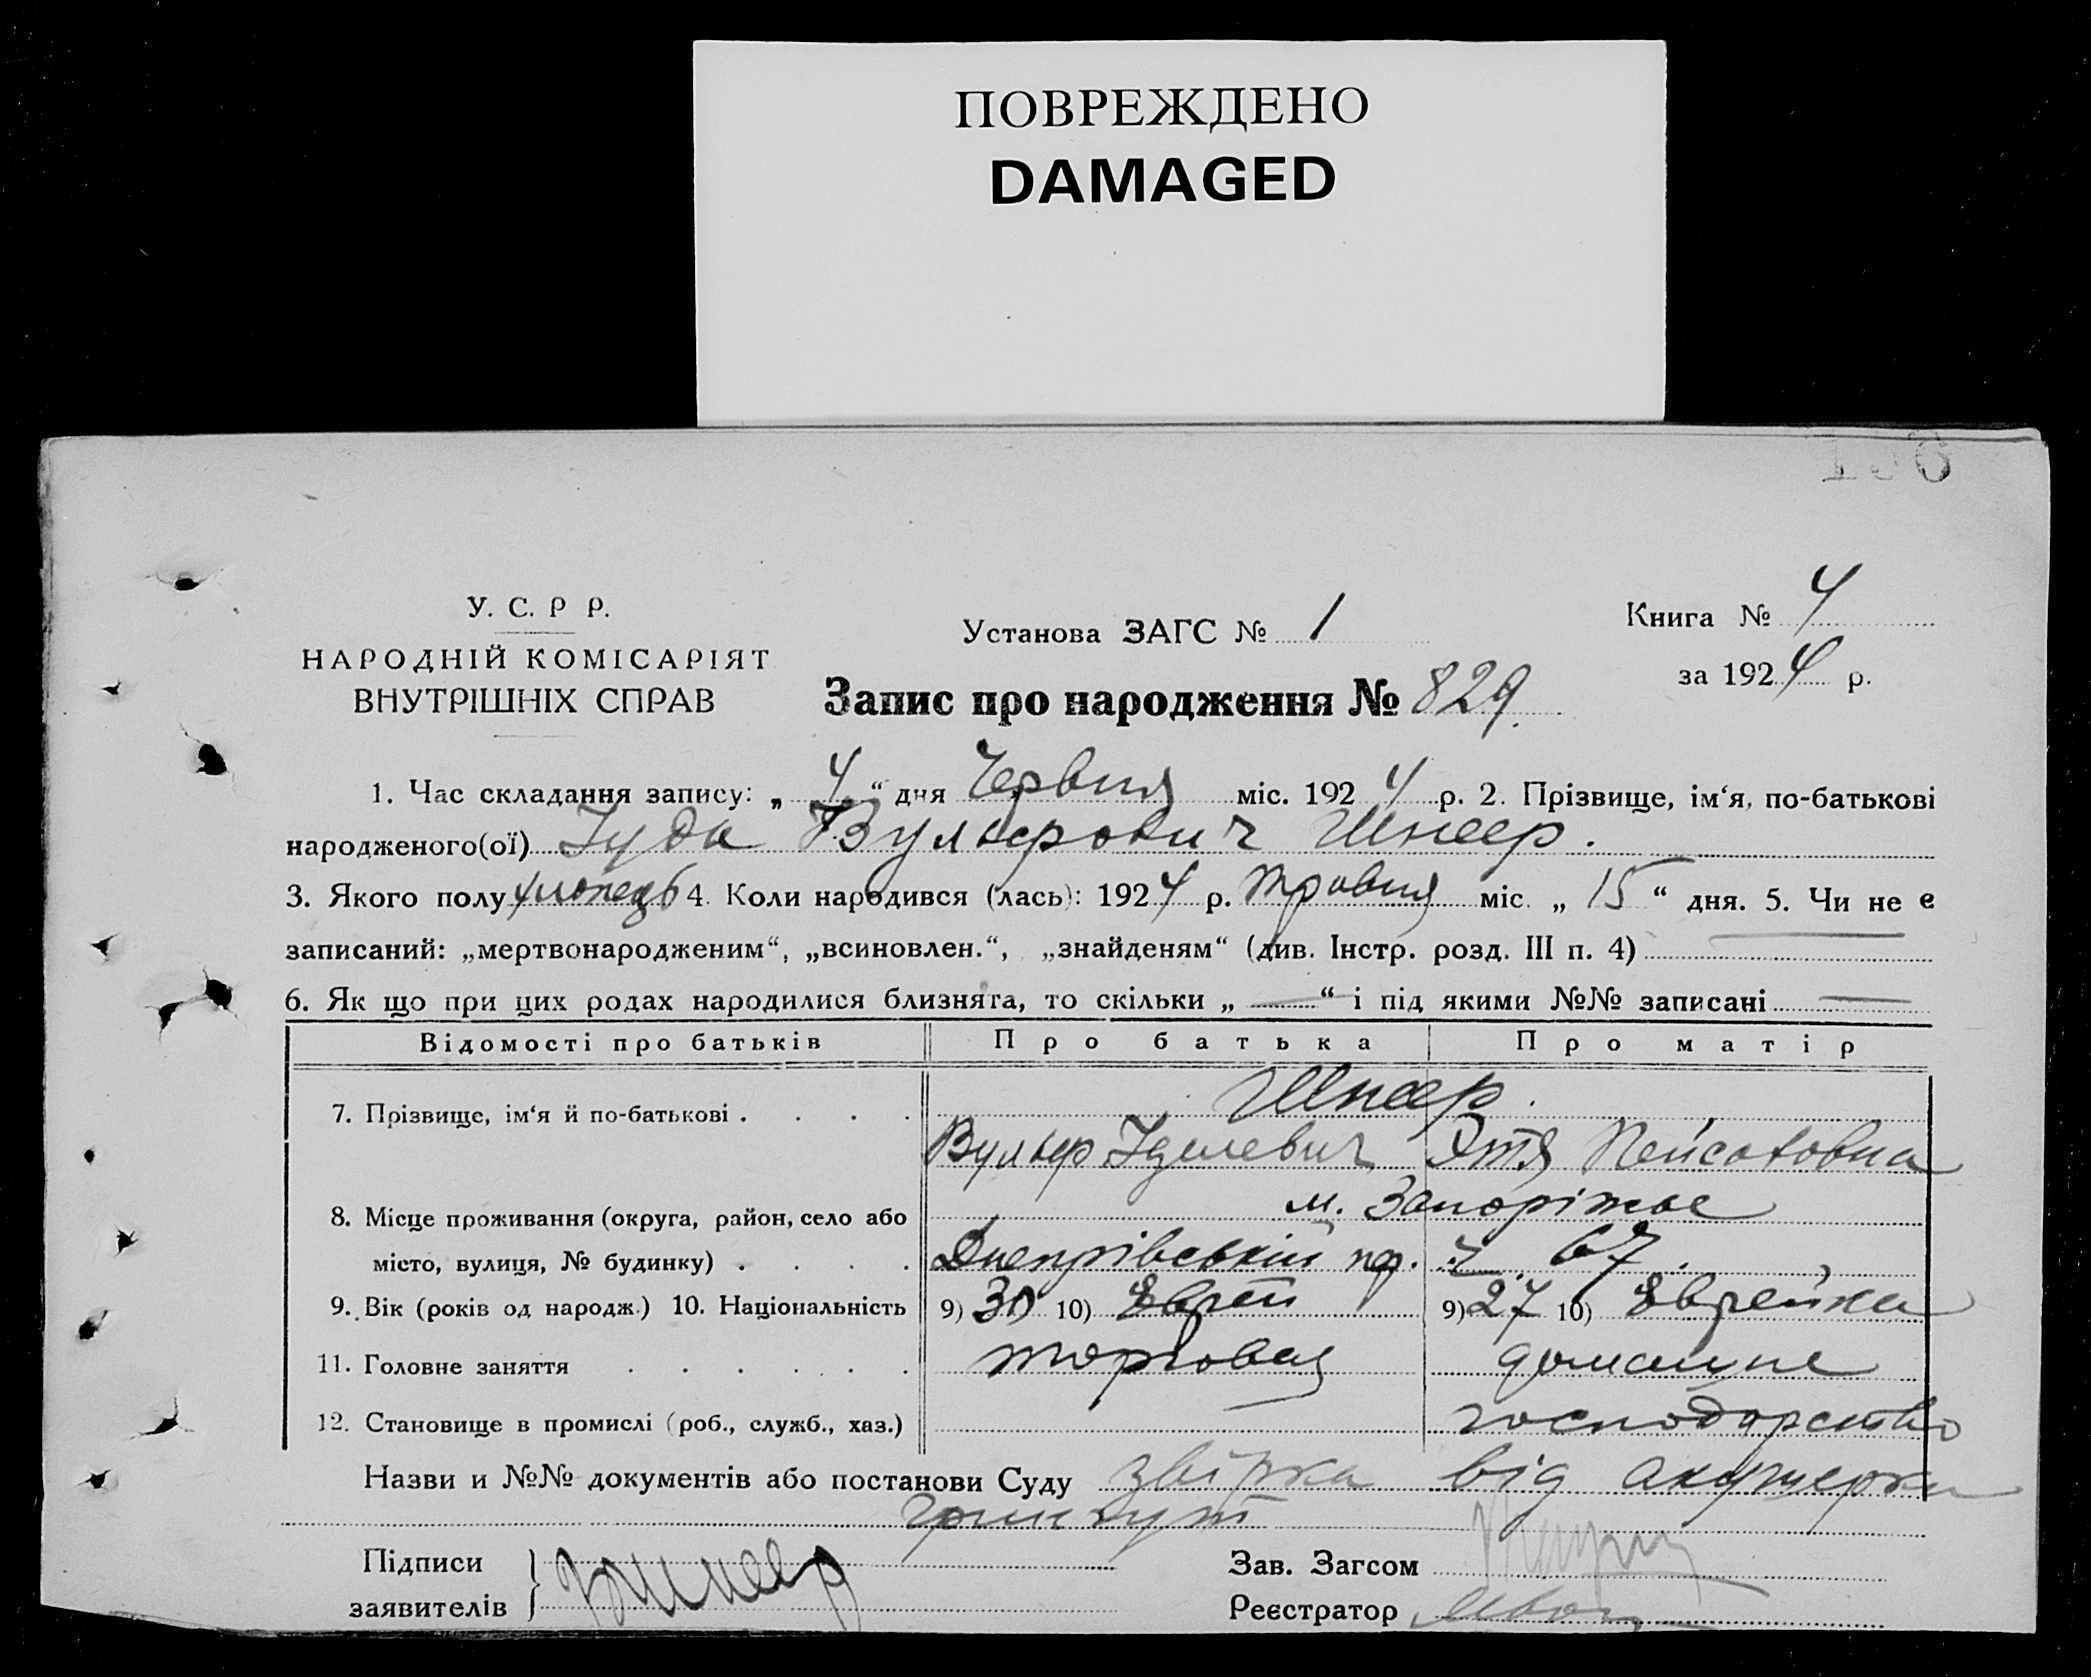 ПОВРЕЖДЕНО
DAMAGED
У. С. Р Р.
НАРОДНІЙ КОМІСАРІЯТ
ВНУТРІШНІХ СПРАВ
Установа ЗАГС № 1
Книга № 4
за 1924 р.
Запис про народження № 829.
1. Час складання запису: „ 4 “ дня Червня міс. 1924 р. 2. Прізвище, ім‘я, по-батькові
народженого(ої) Іуда Вульфович Шнеер.
3. Якого полу хлопець 4. Коли народився (лась): 1924 р. травня міс. „ 15 “ дня. 5. Чи не є
записаний: „мертвонародженим“, „всиновлен.“, „знайденям“ (див. Інстр. розд. III п. 4)
6. Як що при цих родах народилися близнята, то скільки „ — “ і під якими №№ записані —
Відомості про батьків Про батька Про матір
Шнеер.
7. Прізвище, ім‘я й по-батькові . . . .
Вульф Іцилевич Этя Пейсаховна
м. Запоріжье
8. Місце проживання (округа, район, село або
місто, вулиця, № будинку) . . . . Днепрівський пр. 67.
9. Вік (років од народж.) 10. Національність 9) 30 10) Еврей 9) 27 10) Еврейка
11. Головне заняття . . . . . . торговля домашне
12. Становище в промислі (роб., служб., хаз.) господарство
Назви и №№ документів або постанови Суду від акушерки
Підписи
заявителів } Шнеер
Зав. Загсом
Реєстратор